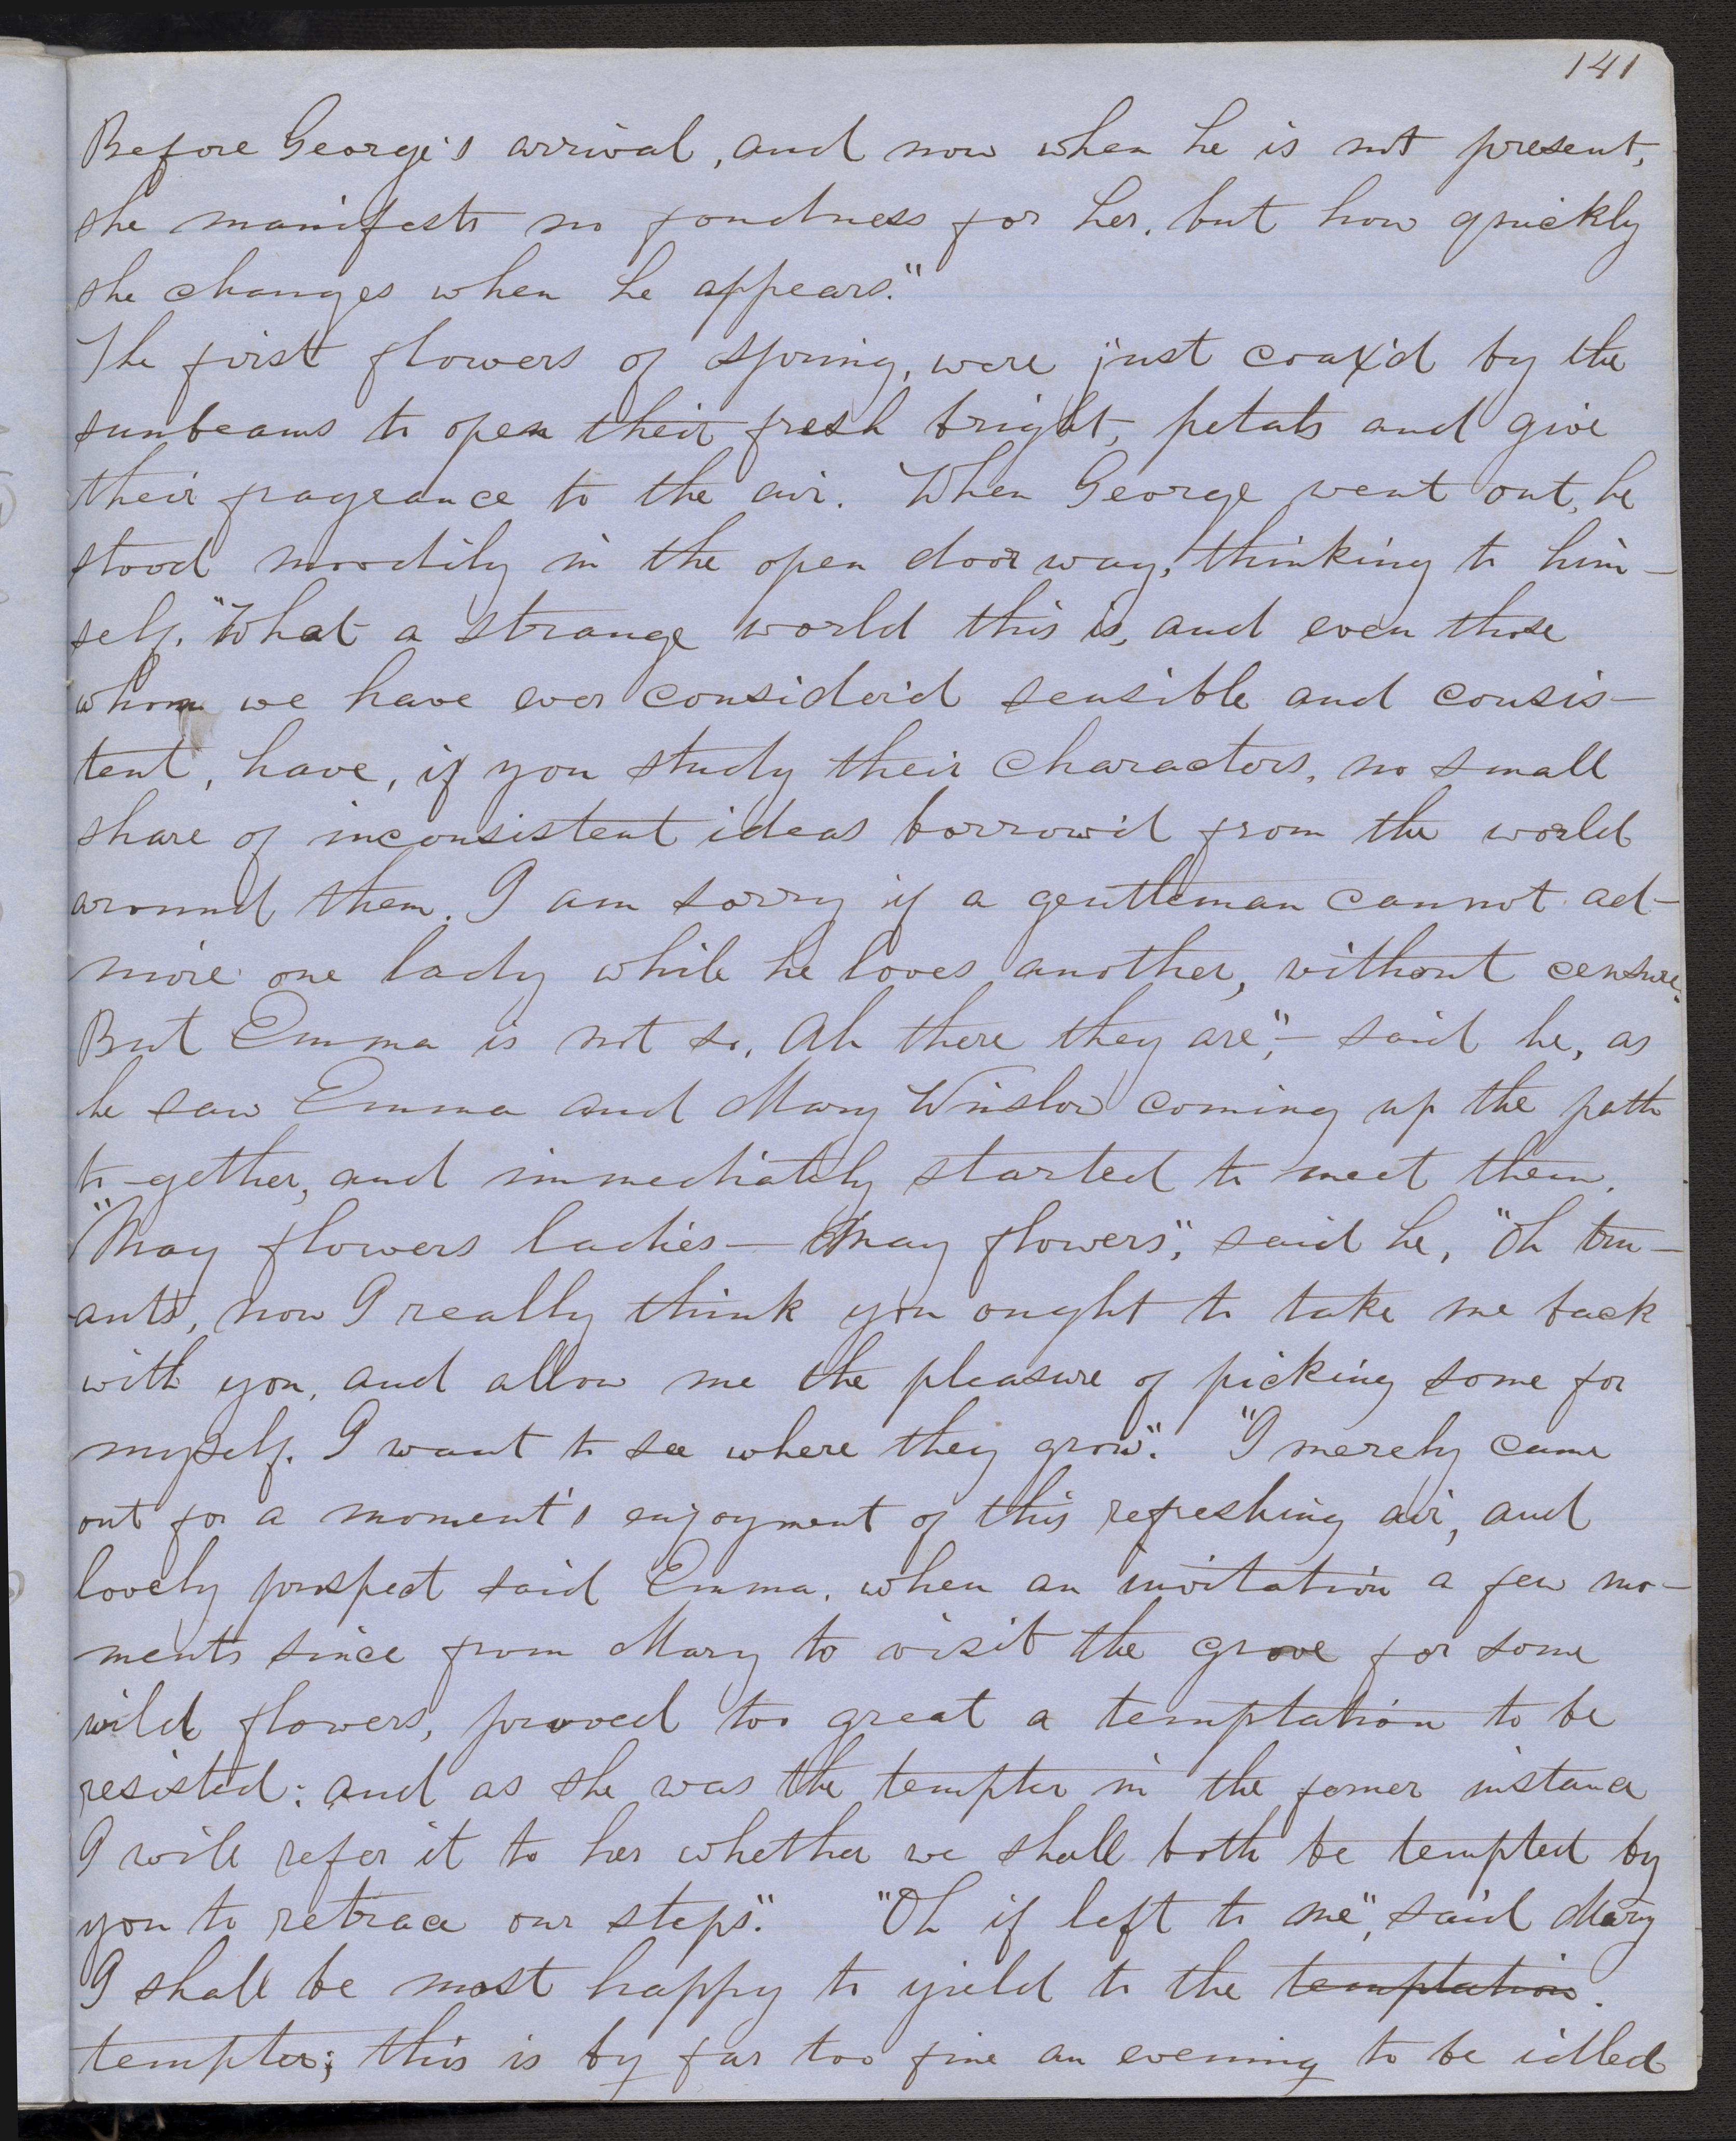 141
Before George's arrival, and now when he is not present,
she manifests no fondness for her, but how quickly
she changes when he appears."
The first flowers of spring, were just coax'd by the
sunbeams to open their fresh bright, petals and give
their frageance to the air. When George went out, he
stood moodily in the open door way, thinking to him-
self. "What a strange world this is, and even those
whom we have ever consider'd sensible and consis-
tent, have, if you study their characters, no small
share of inconsistent ideas borrow'd from the world
around them. I am sorry if a gentleman cannot ad-
mire one lady while he loves another, without censure.
But Emma is not so. Ah there they are", - said he, as
he saw Emma and Mary Winslow coming up the path
to-gether, and immediately started to meet them.
"May flowers ladies - May flowers", said he, "Oh tru-
ants, now I really think you ought to take me back
with you, and allow me the pleasure of picking some for
myself. I want to see where they grow". "I merely came
out for a moment's enjoyment of this refreshing air, and
lovely prospect said Emma, when an invitation a few mo-
ments since from Mary to visit the grove for some
wild flowers, proved too great a temptation to be
resisted: and as she was the tempter in the former instance
I will refer it to her whether we shall both be tempted by
you to retrace our steps". "Oh if left to me", said Mary
I shall be most happy to yield to the temptation.
tempter; this is by far too fine an evening to be idled